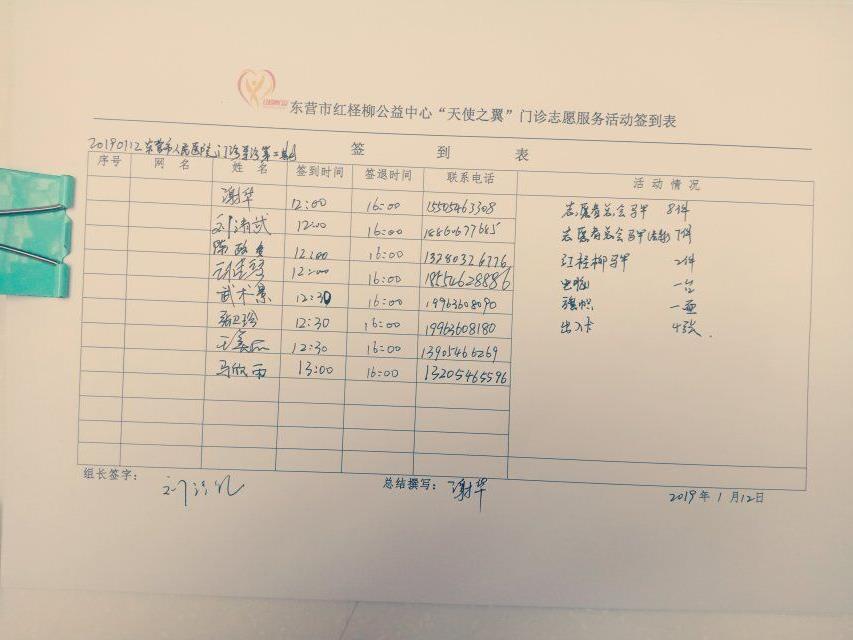 东营市红柽柳公益中心“天使之翼”门诊志愿服务活动签到表
20190112东营市人民医院门诊导诊第二期
签 到 表
序号 网名 姓名 签到时间 签退时间 联系电话 活动情况
谢华 12:00 16:00 15505463308 志愿者总会马甲 8件
刘清武 12:00 16:00 志愿者总会马甲 7件
12:00 16:00 13280326776 红柽柳马甲 2件
12:00 16:00 18554628886 电脑 一台
武术景 12:30 16:00 19963608090 旗帜 一面
张卫玲 12:30 16:00 19963608180 出入卡 4张
12:30 16:00 13905466269
马欣雨 13:00 16:00 13205465596
组长签字：
总结撰写：谢华
2019年1月12日